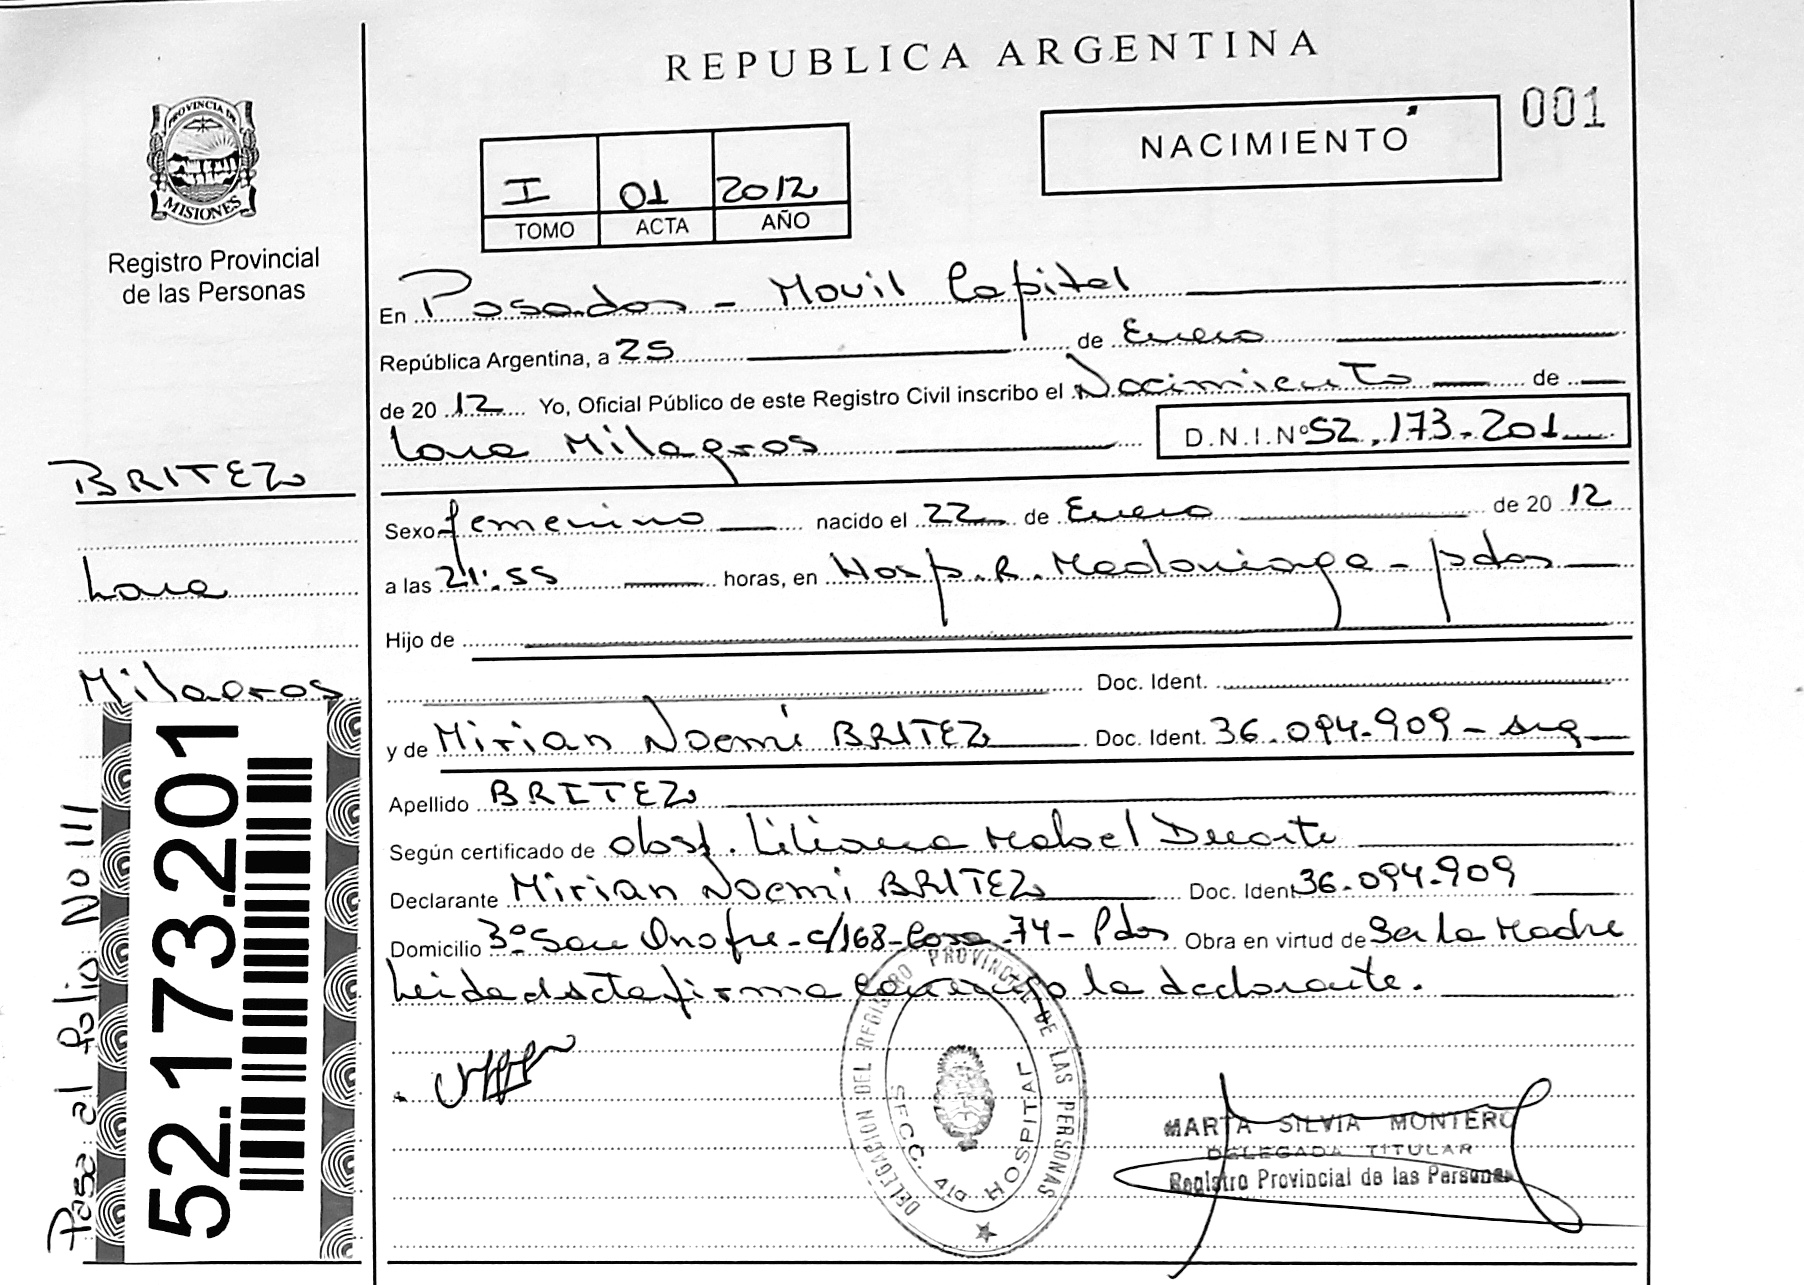 REPUBLICA ARGENTINA
NACIMIENTO
001
I 01 2012
TOMO ACTA AÑO
PROVINCIA DE
MISIONES
Registro Provincial
de las Personas
En Posadas - Movil Capital
República Argentina, a 25 de Enero
de 20 12 Yo, Oficial Público de este Registro Civil inscribo el Nacimiento de
Lara Milagros D.N.I.Nº 52.173.201
Sexo femenino nacido el 22 de Enero de 20 12
a las 21:55 horas, en Hosp. R. Madariaga - pdas
Hijo de
Doc. Ident.
y de Mirian Noemi BRITEZ Doc. Ident. 36.094.909 - arg
Apellido BRITEZ
Según certificado de obst. Liliana Mabel Duarte
Declarante Mirian Noemi BRITEZ Doc. Ident. 36.094.909
Domicilio 3º San Onofre - c/168 - Casa 74 - Pdas Obra en virtud de Ser la Madre
Leida el acta firma conmigo la declarante.
BRITEZ
Lara
Milagros
52.173.201
Pasa al folio No 111
DELEGACION DEL REGISTRO PROVINCIAL DE LAS PERSONAS
SECC. 4ta HOSPITAL
MARTA SILVIA MONTERO
DELEGADA TITULAR
Registro Provincial de las Personas